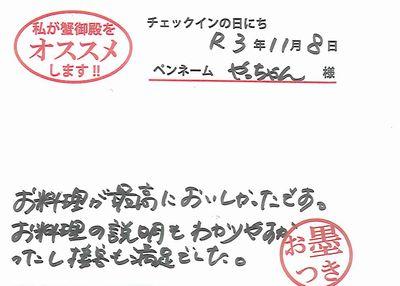 私が蟹御殿を
オススメ
します!!
チェックインの日にち
R3年11月8日
ペンネーム やっちゃん 様
お料理が最高においしかったです。
お料理の説明もわかりやすか
ったし接客も満足でした。
お墨
つき